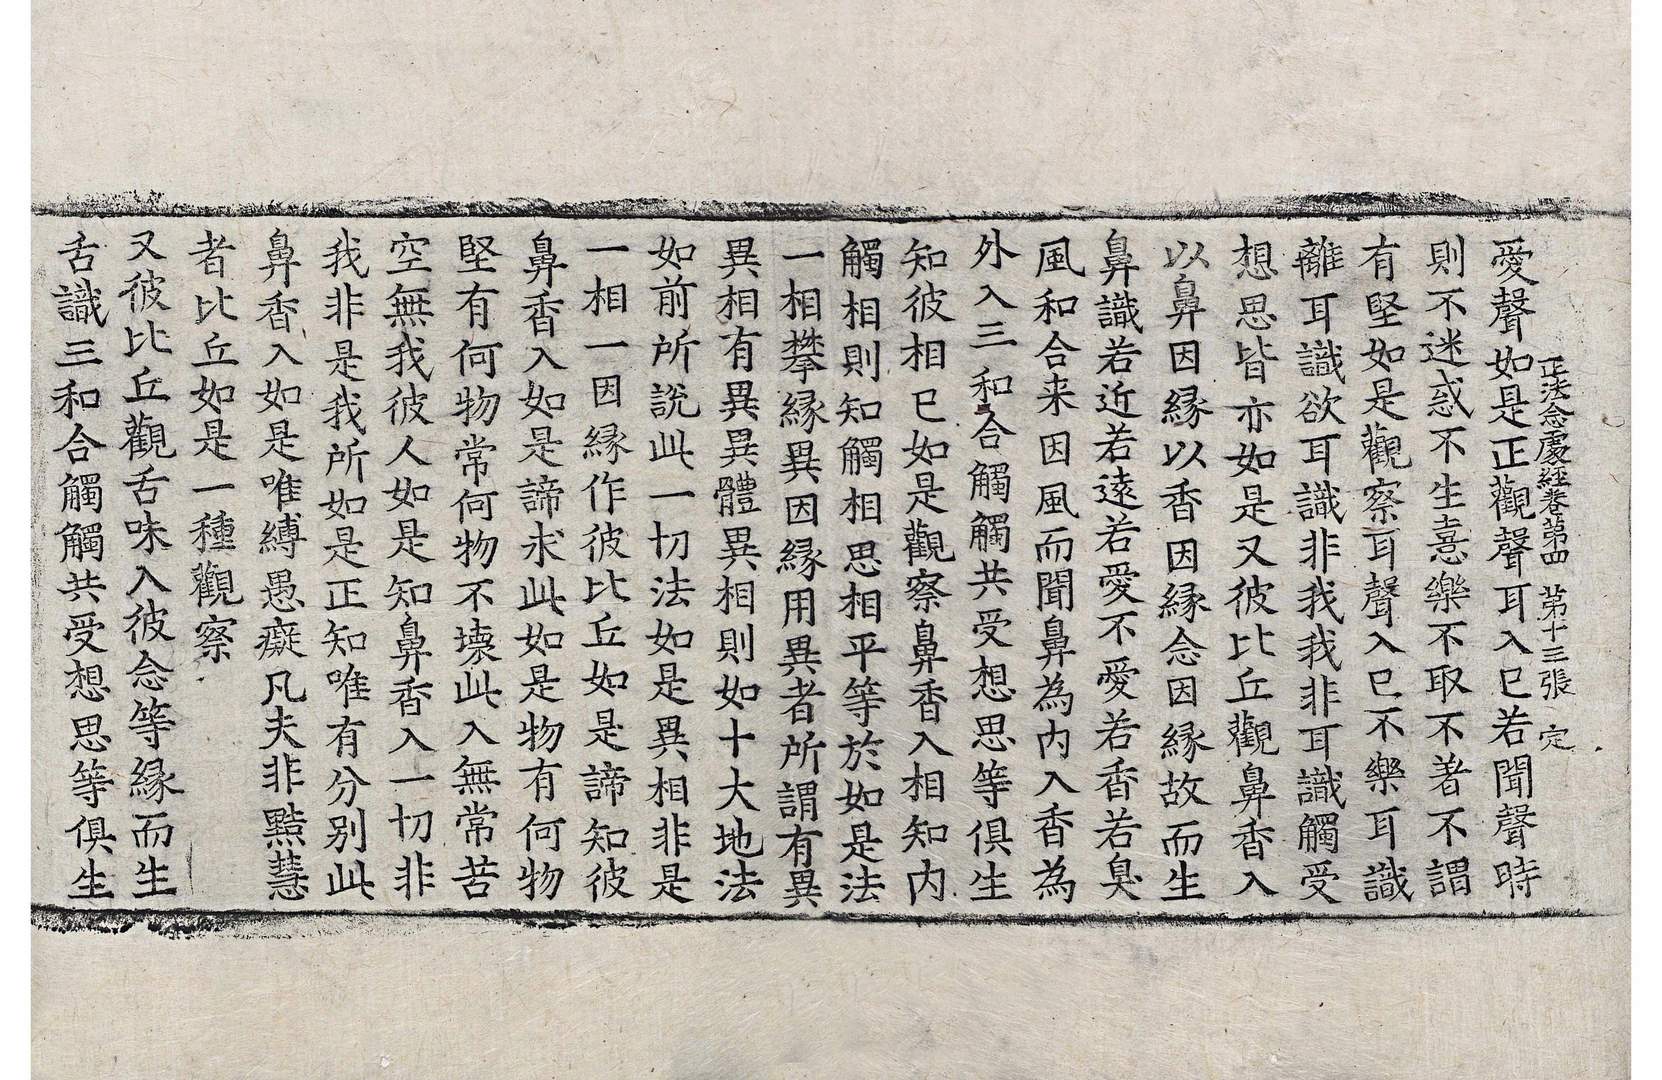 正法念處經卷第四 第十三張 定
愛聲如是正觀聲耳入已若聞聲時
則不迷惑不生憙樂不取不著不謂
有堅如是觀察耳聲入已不樂耳識
離耳識欲耳識非我我非耳識觸受
想思皆亦如是又彼比丘觀鼻香入
以鼻因縁以香因縁念因縁故而生
鼻識若近若遠若愛不愛若香若臭
風和合来因風而聞鼻為内入香為
外入三和合觸觸共受想思等俱生
知彼相已如是觀察鼻香入相知内
觸相則知觸相思相平等於如是法
一相攀縁異因縁用異者所謂有異
異相有異異體異相則如十大地法
如前所說此一切法如是異相非是
一相一因縁作彼比丘如是諦知彼
鼻香入如是諦求此如是物有何物
堅有何物常何物不壞此入無常苦
空無我彼人如是知鼻香入一切非
我非是我所如是正知唯有分别此
鼻香入如是唯縛愚癡凡夫非黠慧
者比丘如是一種觀察
又彼比丘觀舌味入彼念等縁而生
舌識三和合觸觸共受想思等俱生